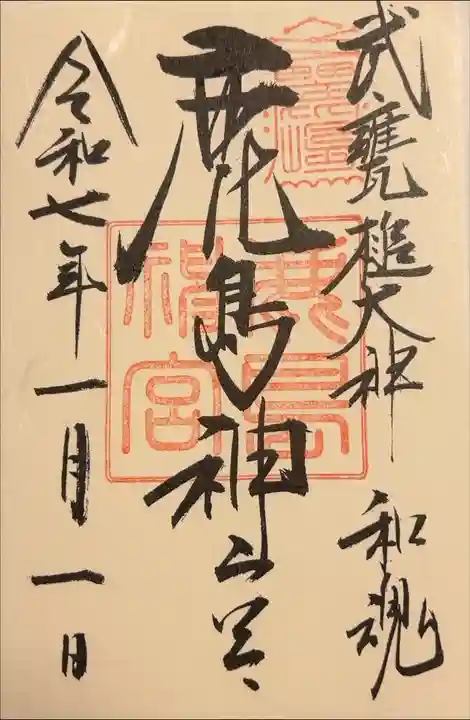 武甕槌大神 和魂
鹿島神宮
鹿島
神宮
令和七年一月一日